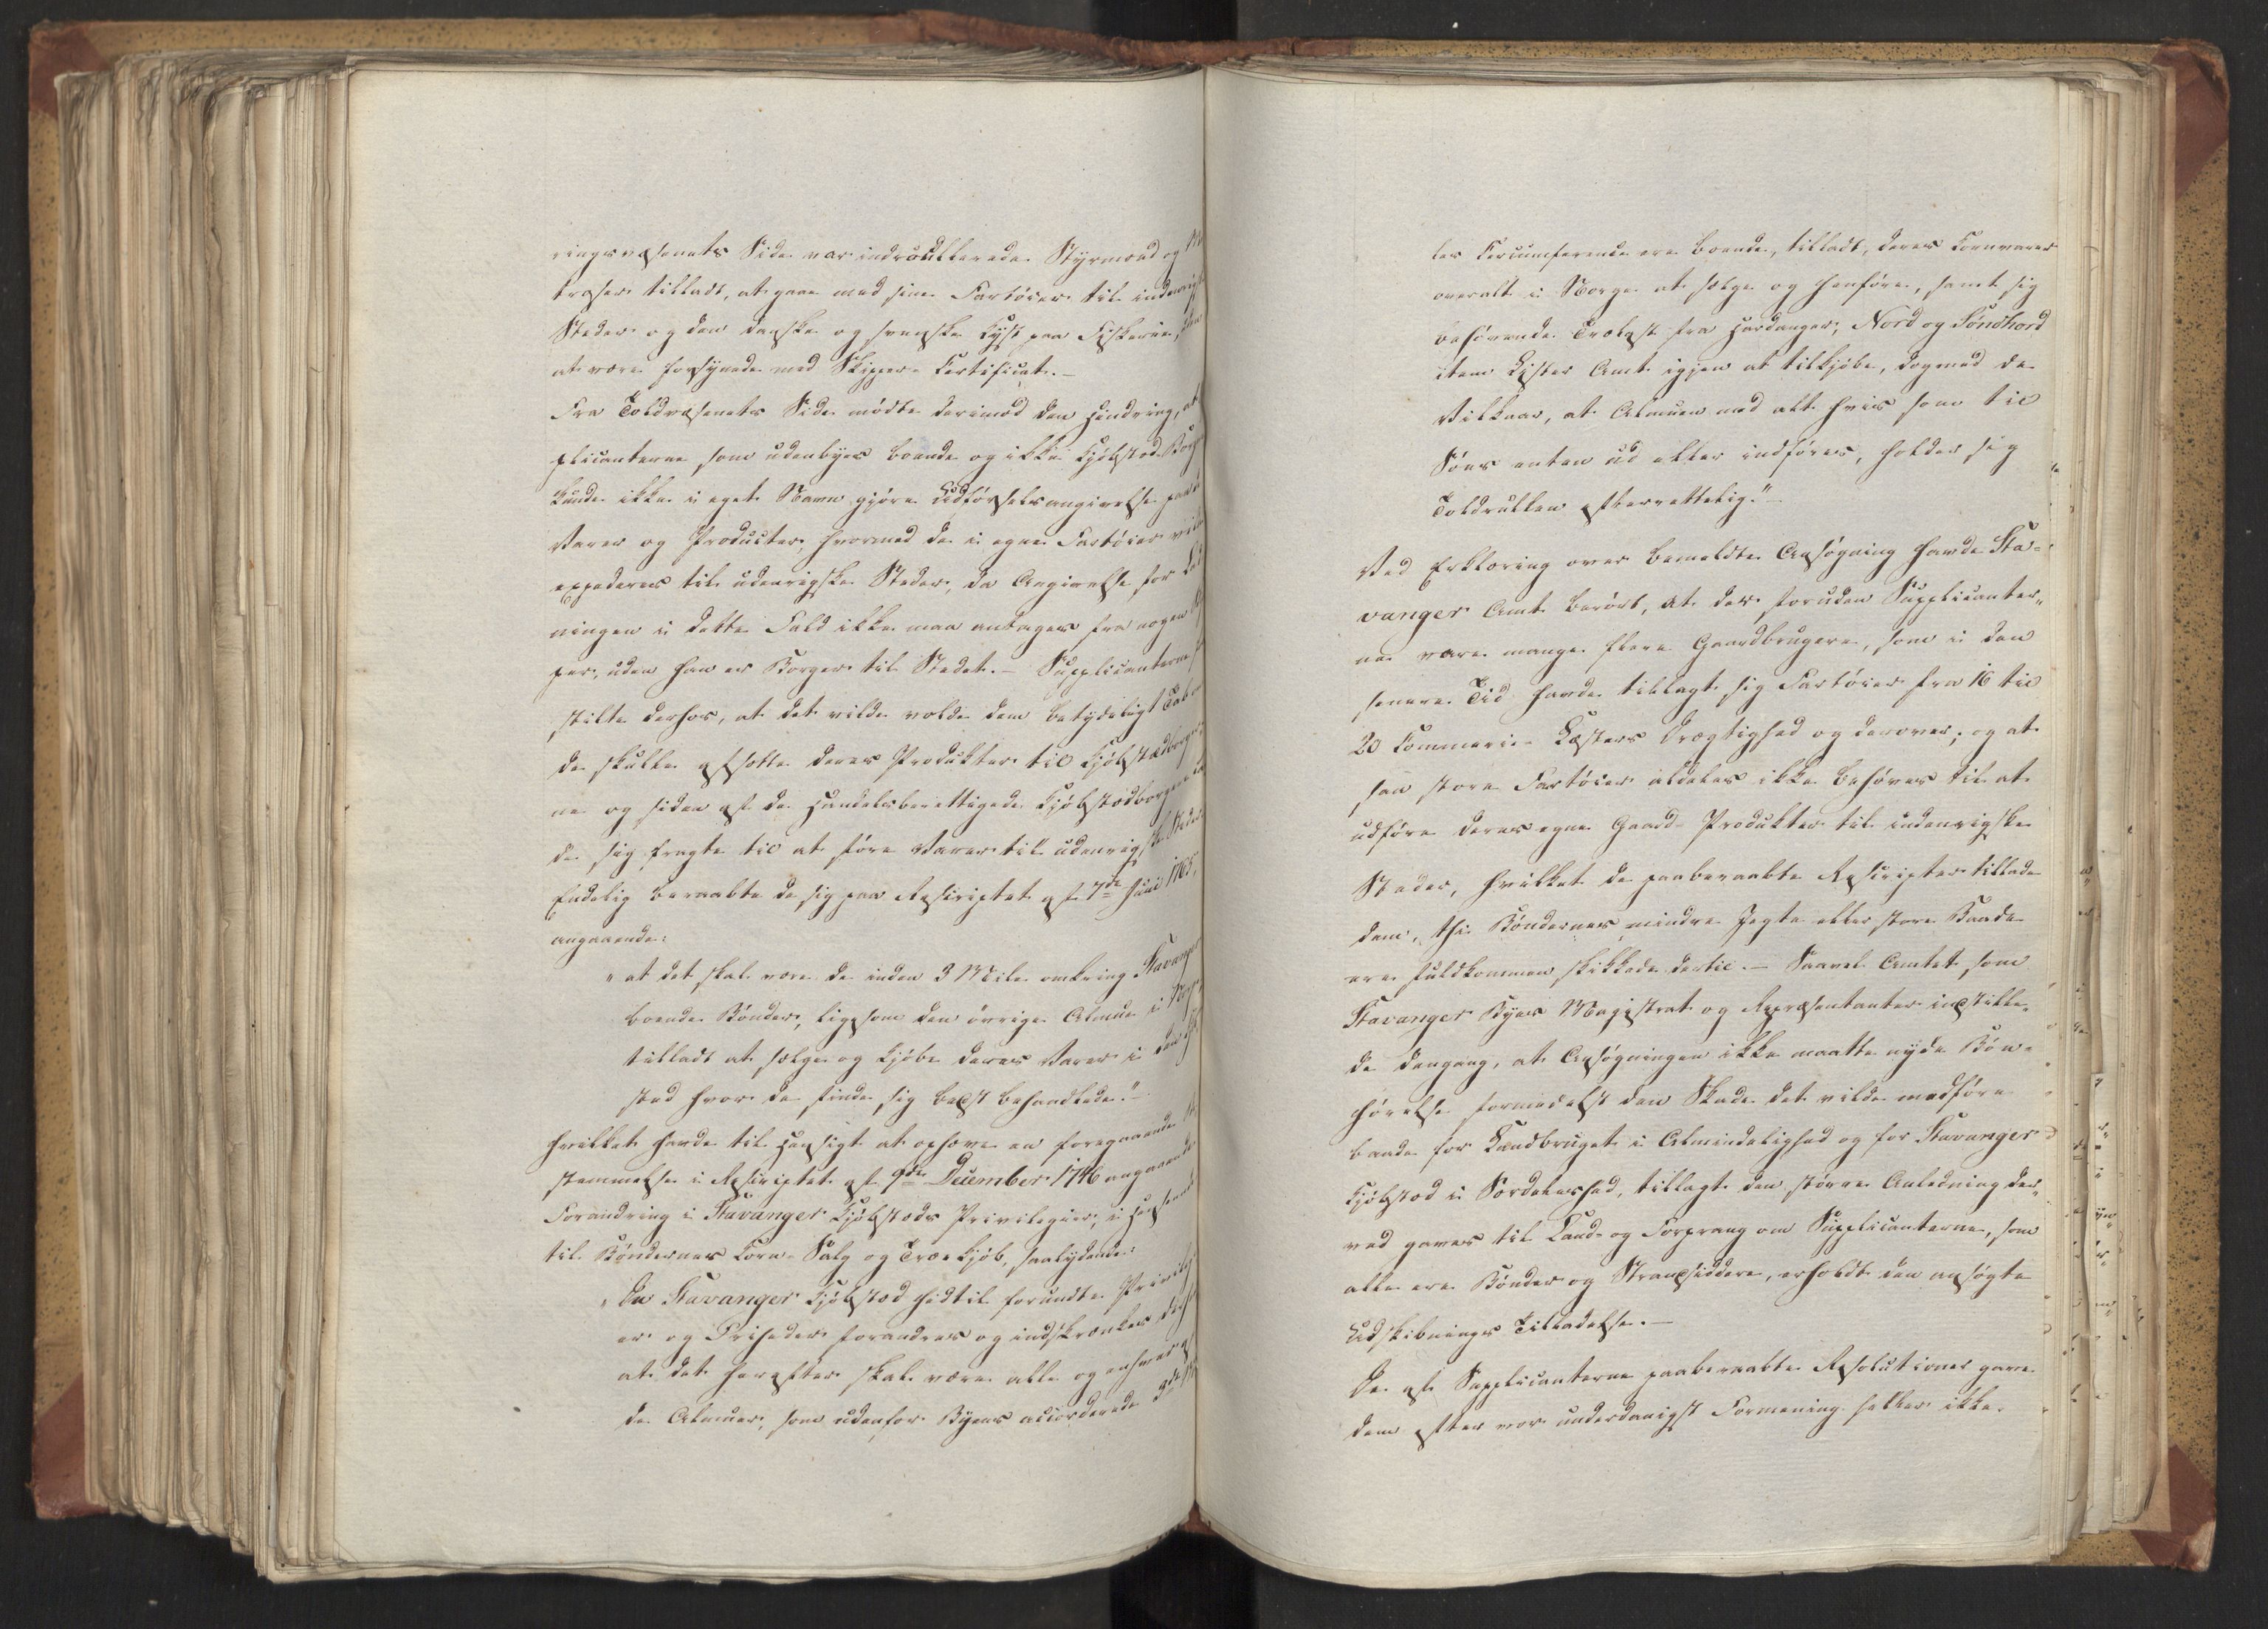 ringsvæsenets Side var indroullerede Styrmænd og Ma
troser tilladt, at gaae med sine Fartöier til indenrigske
Steder og den danske og svenske Kyst paa Fiskerie, uden
at være forsynede med Skipper-Certificat.—
Fra Toldvæsenets Side mödte derimod den Hindring, at
plicanterne som udenbyes boende og ikke Kjöbstad-Borgere
kunde ikke i eget Navn gjöre Udförselsangivelse paa de
Varer og Producter, hvormed de i egne Fartöier vilde
expederes til udenrigske Steder, da Angivelse for Lad
ningen i dette Fald ikke maa antages fra nogen Skip
per, uden han er Borger til Stedet.— Supplicanterne fore
stilte derhos, at det vilde volde dem betydeligt Tab om
de skulle afsætte deres Produkter til Kjöbstædborger
ne og siden af de handelsberettigede Kjöbstædborgere lade
de sig fragte til at före Varer til udenrigske Steder.
Endelig beraabte de sig paa Rescriptet af 7de Juni 1765,
angaaende:
"at det skal være de inden 3 Mile omkring Stavanger
boende Bönder, ligesom den övrige Almue i Norge,
tilladt at sælge og kjöbe deres Varer i den Kjöb
stad hvor de finde sig bedst behandlede."—
hvilket havde til Hensigt at ophæve en foregaaende Be
stemmelse i Rescriptet af 9de December 1746 angaaende
Forandring i Stavanger Kjöbstæds Privilegier, i Henseende
til Böndernes Korn-Salg og Træe Kjöb, saalydende:
"De Stavanger Kjöbstæd hidtil forundte Privilegi
er og Friheder forandres og indskrænkes
at det herefter skal være alle og enhver af
de Almuer, som udenfor Byens accorderede 3de Mi
les Circumference ere boende, tilladt, deres Kornvarer
overalt i Norge at sælge og henföre, samt sig
behövende Trælast fra Hardanger, Nord og Söndhord
item Lister Amt igjen at tilkjöbe, dog med de
Vilkaar, at Almuen med alt hvis som til
Söes enten ud eller indföres, holder sig
Toldrullen efterrettelig."—
Ved Erklæring over bemeldte Ansögning havde Sta-
vanger Amt berört, at der, foruden Supplicanter"
ne vare mange flere Gaardbrugere, som i den
senere Tid havde tillagt sig Fartöier fra 16 til
20 Commerce-Læsters Drægtighed og derover; og at
saa store Fartöier aldeles ikke behöves til at
udföre deres egne Gaard-Produkter til indenrigske
Steder, hvilket de paaberaabte Rescripter tillade
dem, thi Böndernes mindre Jegte eller store Baade
ere fuldkommen skikkede dertil.— Saavel Amtet som
Stavanger Byes Magistrat og Repræsentanter indstille-
de dengang, at Ansögningen ikke maatte nyde Bön-
hörelse formedelst den Skade det vilde medföre
baade for Landbruget i Almindelighed og for Stavanger
Kjöbstæd i Særdeleshed, tillagt den större Anledning der"
ved gaves til Land- og Forprang om Supplicanterne, som
alle ere Bönder og Strandsiddere, erholdt den ansögte
Udskibnings Tilladelse.—
De af Supplicanterne paaberaabte Resolutioner gave
dem efter vor underdanigst Formening heller ikke.